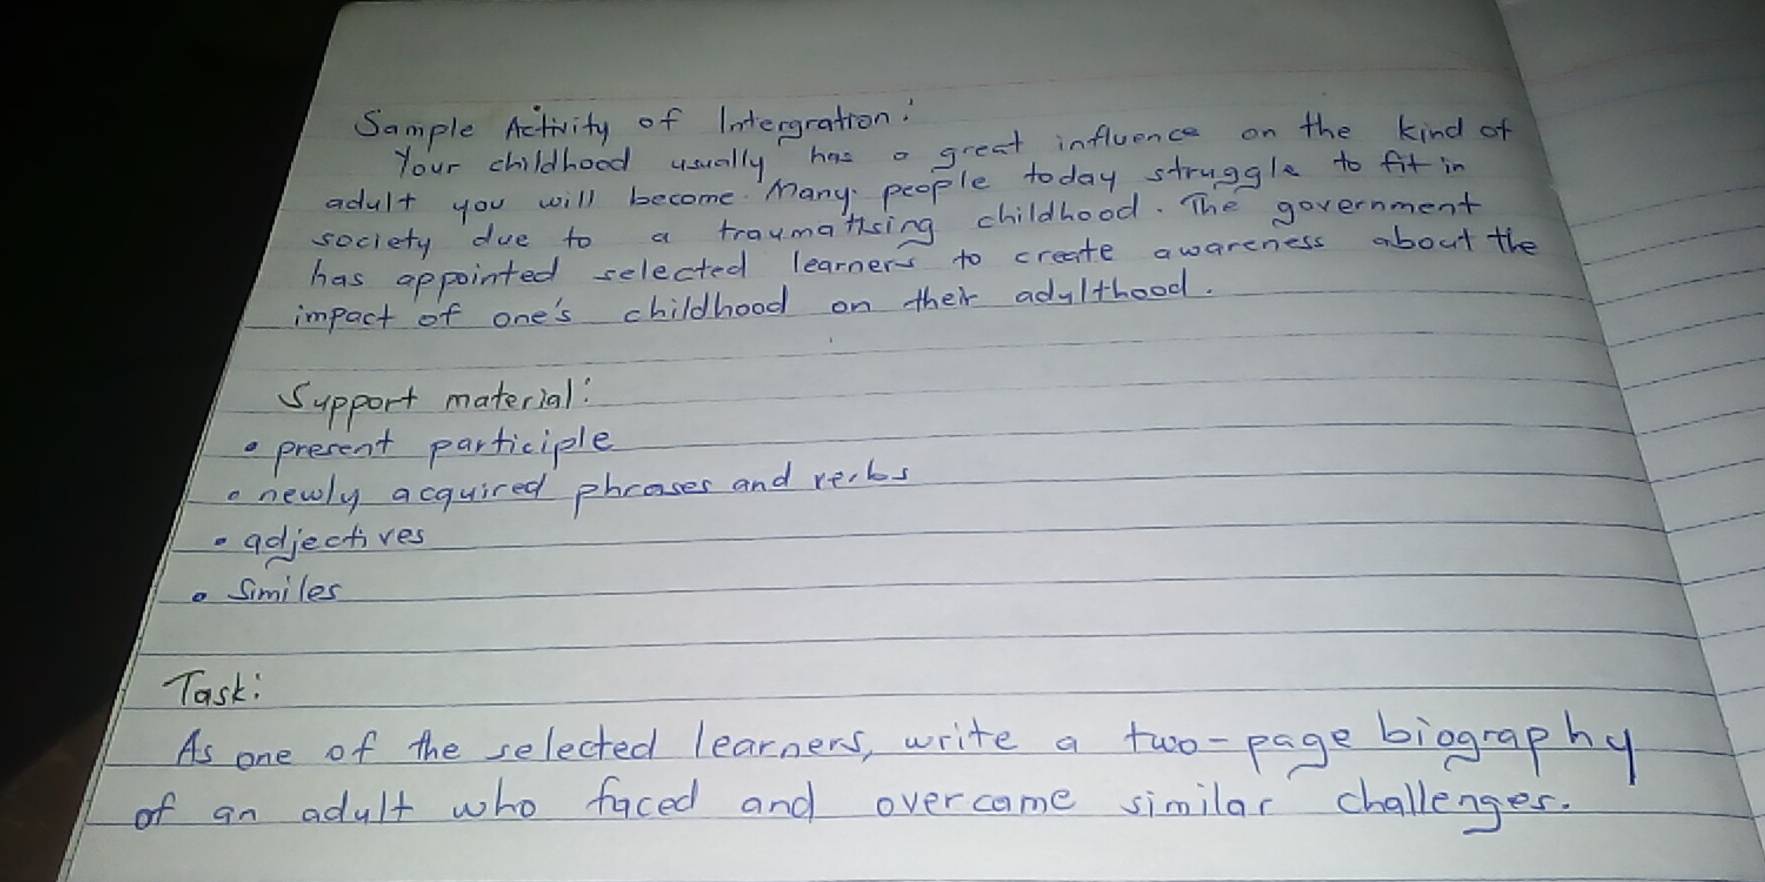 Sample Activity of Intergration:
Your childhood usually has a great influence on the kind of
adult you will become. Many people today struggle to fit in
society due to a traumatising childhood. The government
has appointed selected learners to create awareness about the
impact of one's childhood on their adulthood.
Support material:
• present participle
• newly acquired phrases and verbs
• adjectives
• Similes
Task:
As one of the selected learners, write a two-page biography
of an adult who faced and overcame similar challenges.